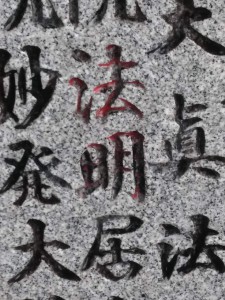 貞法
法明居
妙発大